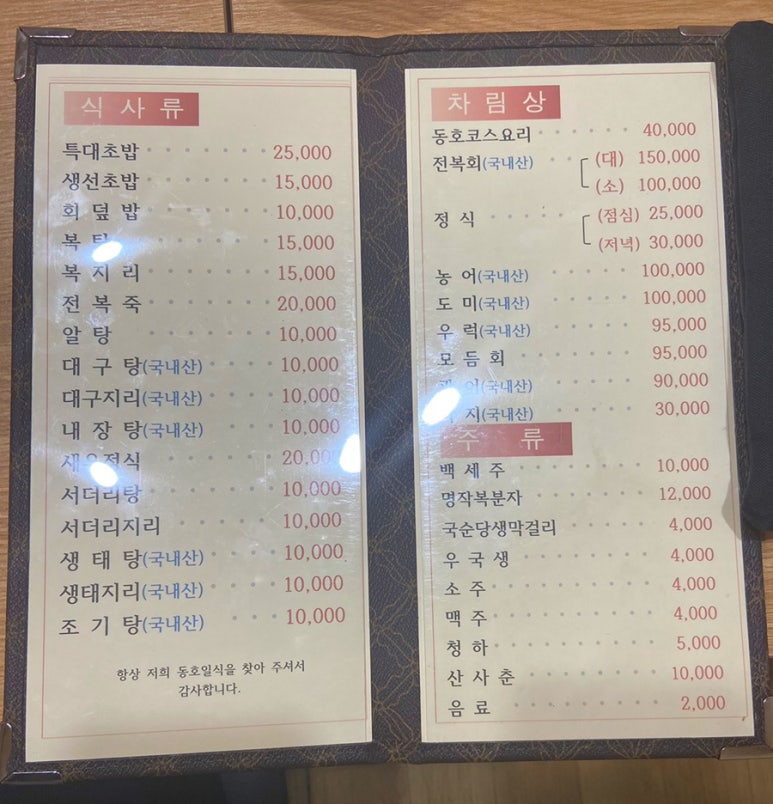 식사류
특대초밥 25,000
생선초밥 15,000
회덮밥 10,000
복탕 15,000
복지리 15,000
전복죽 20,000
알탕 10,000
대구탕(국내산) 10,000
대구지리(국내산) 10,000
내장탕(국내산) 10,000
새우정식 20,000
서더리탕 10,000
서더리지리 10,000
생태탕(국내산) 10,000
생태지리(국내산) 10,000
조기탕(국내산) 10,000
항상 저희 동호일식을 찾아 주셔서
감사합니다.
차림상
동호코스요리 40,000
전복회(국내산) (대) 150,000
(소) 100,000
정식 (점심) 25,000
(저녁) 30,000
농어(국내산) 100,000
도미(국내산) 100,000
우럭(국내산) 95,000
모듬회 95,000
어(국내산) 90,000
지(국내산) 30,000
주류
백세주 10,000
명작복분자 12,000
국순당생막걸리 4,000
우국생 4,000
소주 4,000
맥주 4,000
청하 5,000
산사춘 10,000
음료 2,000